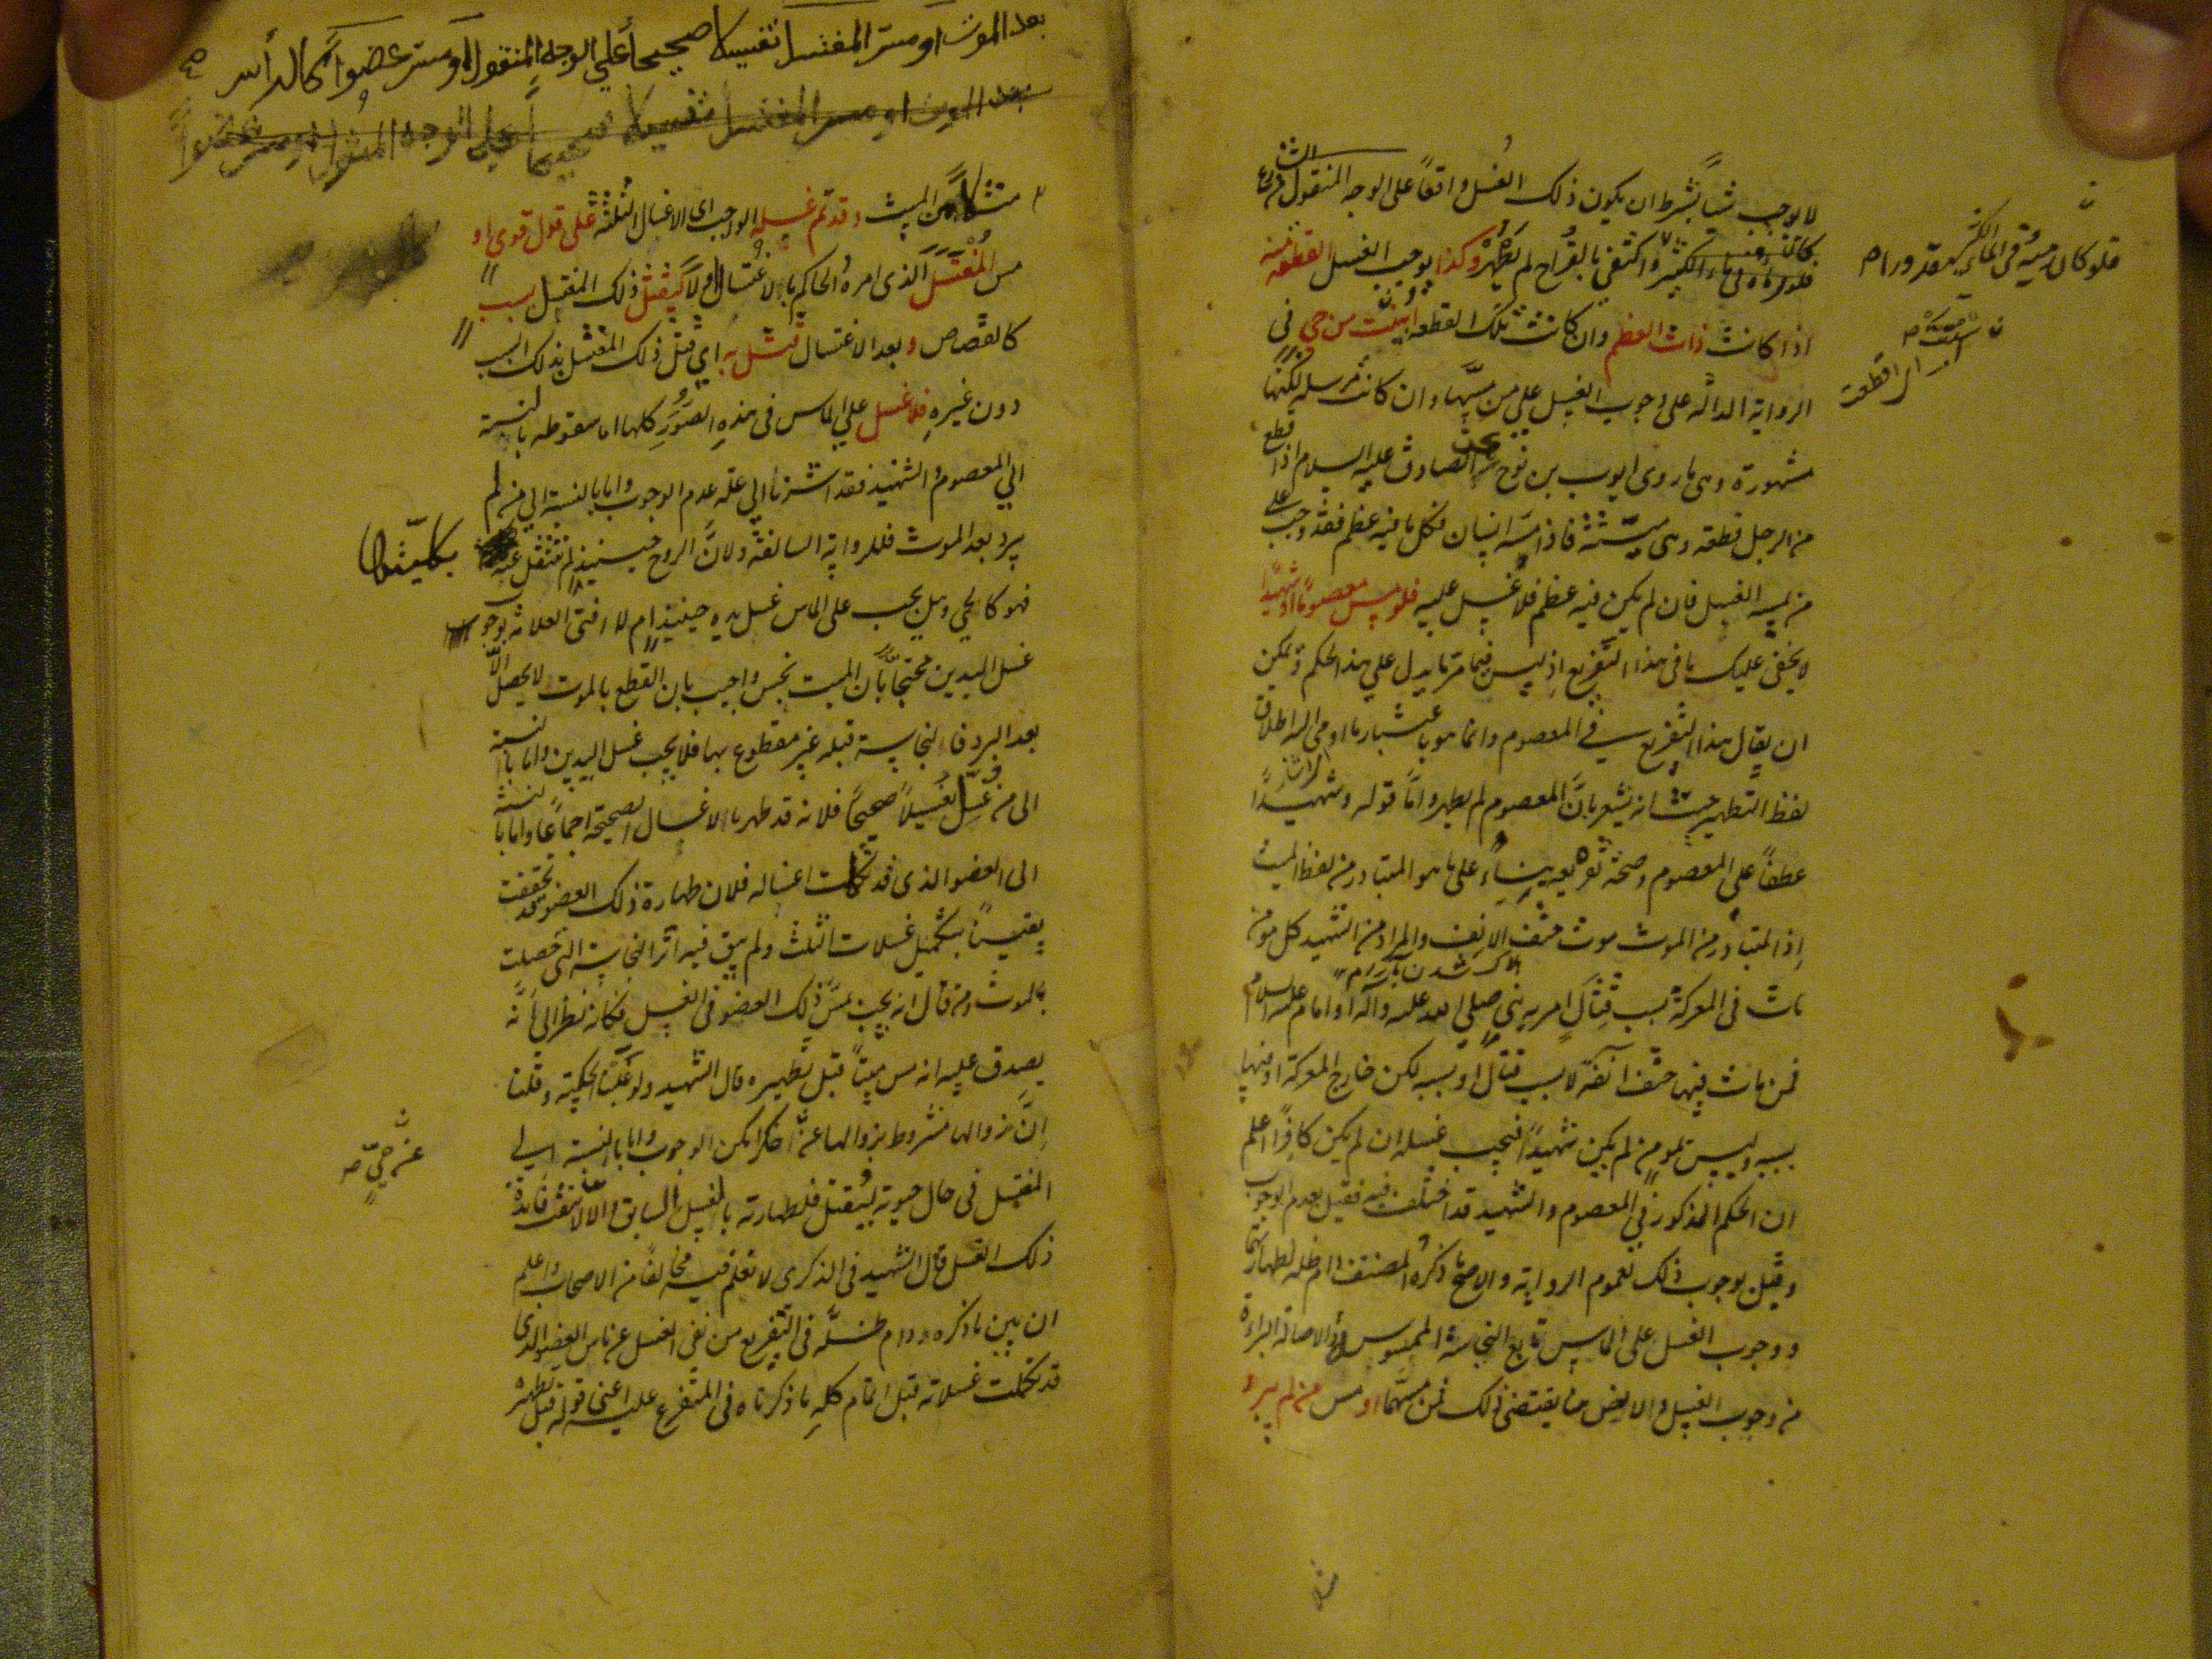 لا يوجب شيئا بشرط ان يكون ذلك الغسل واقعاً على الوجه المنقول
فلو رماه في ماء الكثير او اكتفى بالقراح لم يطهر وكذا يوجب الغسل القطعة منه
اذا كانت ذات العظم وان كانت تلك القطعة ابينت من حي في
الرواية الدالة على وجوب الغسل على من مسها وان كانت مرسلة لكنها
مشهورة وهى ما روى ايوب بن نوح عن الصادق عليه السلام اذا قطع
من الرجل قطعة وهى ميتة فاذا مسه انسان فكل ما فيه عظم فقد وجب على
من يمسه الغسل فان لم يكن فيه عظم فلا غسل عليه فلو مس معصوما او شهيدا
لا يخفى عليك ما فى هذا التفريع اذ ليس فيما مر ما يدل على هذا الحكم ويمكن
ان يقال هذا التفريع في المعصوم وانما هو باعتبار ما اومى اليه اطلاق
لفظ التطهير حيث انه يشعر بانّ المعصوم لم يطهر واما قوله وشهيدًا
عطفاً على المعصوم وصحة تفريعه بناءً على ما هو المتبادر من لفظ الميت
اذ المتبادر من الموت موت حتف الانف والمراد من الشهيد كل مؤمن
مات فى المعركة بسبب قتال امر به نبي صلى الله عليه وآله او امام عليه السلام
فمن مات فيها حتف انفه لا بسبب قتال او بسببه لكن خارج المعركة او فيها
بسببه وليس بمؤمن لم يكن شهيداً فيجب غسله ان لم يكن كافرًا اعلم
ان الحكم المذكور في المعصوم والشهيد قد اختلف فيه فقيل بعدم الوجوب
وقيل بوجوب ذلك لعموم الرواية والاصح ما ذكره المصنف دام ظله لطهارتهما
ووجوب الغسل على الماس تابع لنجاسة الممسوس ولاصالة البراءة
من وجوب الغسل ولا معارض مما يقتضى ذلك فمن مسهما او مس من لم يبرد
فلو كان رميته في الماء الكثير
بعد الموت او مس المغسل تغسيلا صحيحاً على الوجه المنقول او مس عضواً كمال رأس
بعد الموت او مس المغسل تغسيلا صحيحاً على الوجه المنقول او مس عضواً
مثلا من الميت وقد تم غسله الواجب اى الاغسال الثلثة على قول قوى او
مس المُغْتَسِل الذى امره الحاكم بالاغتسال اولا ليقتل ذلك المغتسل بسبب
كالقصاص وبعد الاغتسال قتل به اي قتل ذلك المغتسل بذلك السبب
دون غيره فلا غسل علي الماس فى هذه الصُّوَرِ كلها اما سقوطه بالنسبة
الي المعصوم والشهيد فقد اشرنا الي علة عدم الوجوب واما بالنسبة الي من لم
يبرد بعد الموت فللرواية السالفة ولانّ الروح حينئذ لم تنتقل عنه بكليتها
فهو كالحي وهل يجب على الماس غسل يده حينئذ ام لا افتى العلامة بوجوب
غسل اليدين محتجاً بأن الميت نجس واجيب بان القطع بالموت لا يحصل الاّ
بعد البرد فالنجاسة قبله غير مقطوع بها فلا يجب غسل اليدين واما بالنسبة
الى من غُسِّل تغسيلاً صحيحاً فلانه قد طهر بالاغسال الصحيحة اجماعًا واما بالنسبة
الى العضو الذى قد تكملت اغساله فلان طهارة ذلك العضو قد تحققت
يقيناً بتكميل غسلات الثلث ولم يبق فيه اثر النجاسة التى حصلت
بالموت ومن قال انه يجب بمسّ ذلك العضو فى الغسل فكأنه نظر الى أنّه
يصدق عليه انه مس ميتاً قبل تطهيره قال الشهيد ولو غلبنا الحكمية وقلنا
إنَّ زوالها مشروط بزوالها عن اخرها امكن الوجوب واما بالنسبة الي
المغتسل فى حال حيوته ليُقتل فلطهارته بالغسل السابق والاّ لانتفت فائدة
ذلك الغسل قال الشهيد فى الذكرى لا نعلم فيه مخالفاً من الاصحاب واعلم
ان بين ما ذكره دام ظلّه فى التفريع من نفى الغسل عن ماس العضو الذى
قد تكملت غسلاته قبل اتمام كلهِ ما ذكرناه فى المتفرع عليه اعنى قوله قبل تطهيره